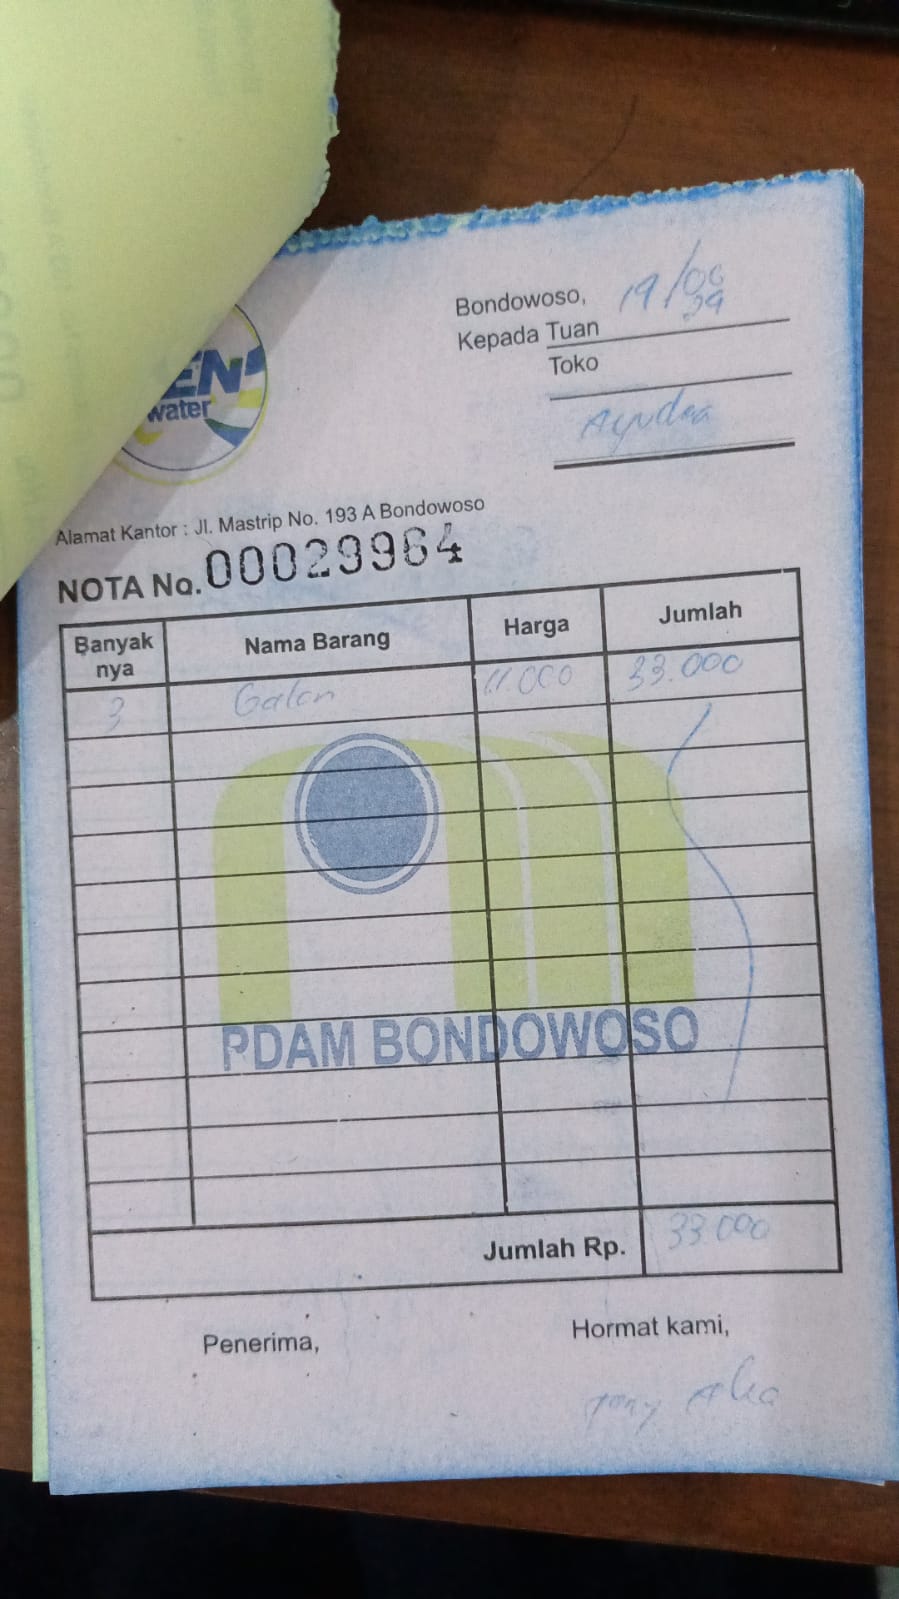 EN
water
Bondowoso, 19/06
Kepada Tuan
Toko
Alamat Kantor : Jl. Mastrip No. 193 A Bondowoso
NOTA No. 00029964
Banyak nya Nama Barang Harga Jumlah
3 Galon 11.000 33.000
PDAM BONDOWOSO
Jumlah Rp. 33.000
Penerima, Hormat kami,